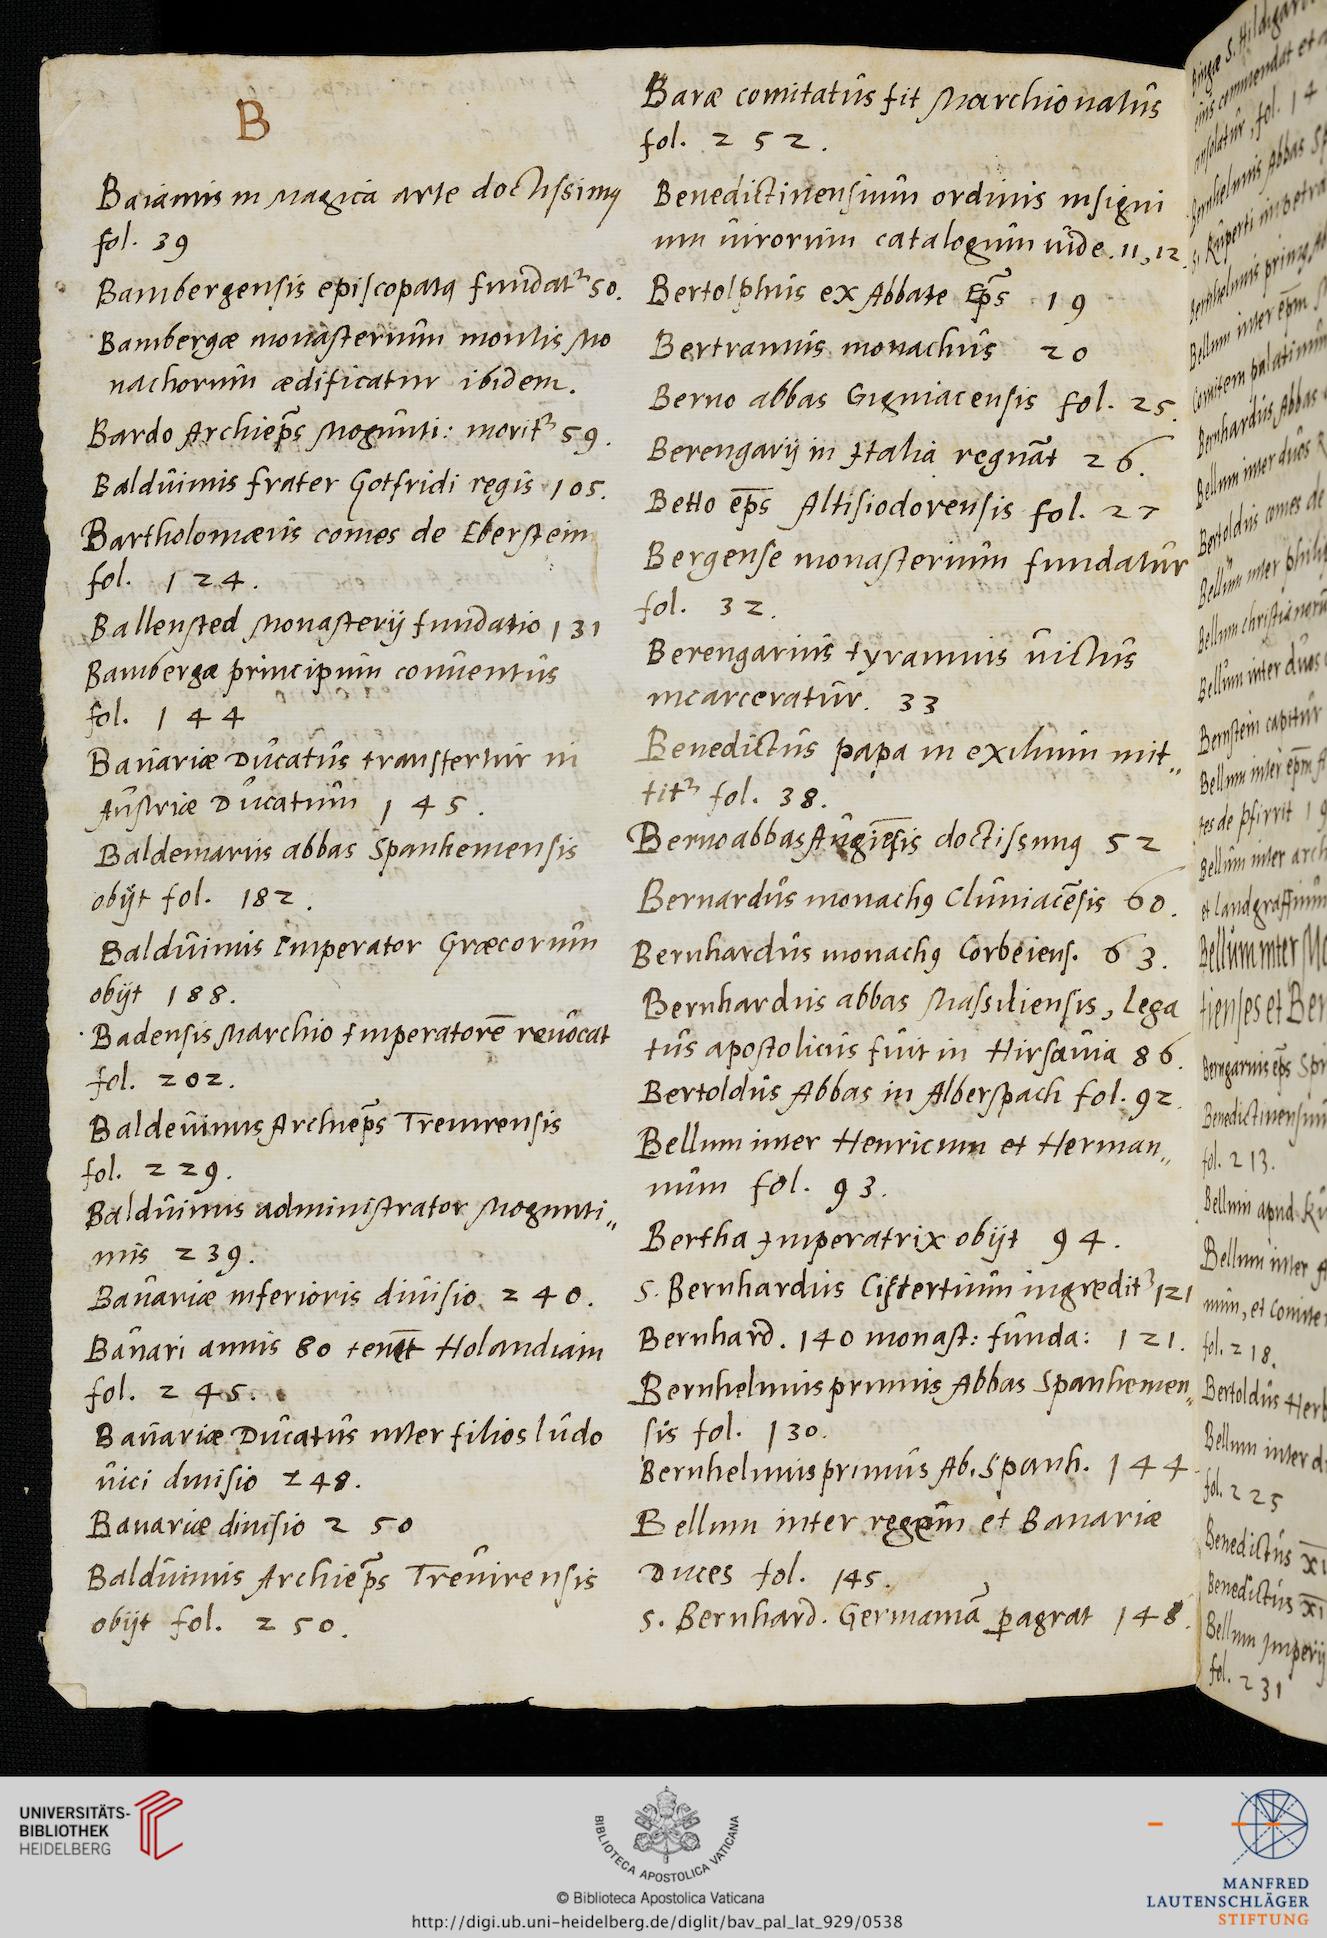 B
Baiamis in Magica arte doctissimꝰ
fol. 39
Bambergensis episcopatꝰ fundat᷑ 50.
Bambergæ monasterium montis Mo
nachorum ædificatur ibidem.
Bardo Archiep̃s Mogunti: morit᷑ 59.
Balduinus frater Gotfridi regis 105.
Bartholomæus comes de Eberstein
fol. 124.
Ballensted Monasterij fundatio 131
Bambergæ principum conuentus
fol. 144
Bauariæ Ducatus transfertur in
Austriæ Ducatum 145.
Baldemarus abbas Spanhemensis
obijt fol. 182.
Balduinus Imperator Græcorum
obijt 188.
Badensis Marchio Imperatorē reuocat
fol. 202.
Baldeuinus Archiep̃s Treuirensis
fol. 229.
Balduinus administrator Mogunti„
nus 239.
Bauariæ inferioris diuisio 240.
Bauari annis 80 tenēt Holandiam
fol. 245.
Bauariæ Ducatus inter filios ludo
uici diuisio 248.
Bauariæ diuisio 250
Balduinus Archiep̃s Treuirensis
obijt fol. 250.
Baræ comitatus fit Marchionatus
fol. 252.
Benedictinensium ordinis insigni
um uirorum catalogum uide. 11, 12.
Bertolphus ex Abbate Ep̃s 19
Bertramus monachus 20
Berno abbas Gigniacensis fol. 25.
Berengarij in Italia regnāt 26.
Betto ep̄s Altisiodorensis fol. 27
Bergense monasterium fundatur
fol. 32.
Berengarius tyrannus uictus
incarceratur. 33
Benedictus papa in exilium mit„
tit᷑ fol. 38.
Berno abbas Augiēsis doctissimꝰ 52
Bernardus monachꝰ Cluniacēsis 60.
Bernhardus monachꝰ Corbeiens. 63.
Bernhardus abbas Massiliensis, lega
tus apostolicus fuit in Hirsauia 86.
Bertoldus Abbas in Alberspach fol. 92.
Bellum inter Henricum et Herman„
num fol. 93.
Bertha Imperatrix obijt 94.
S. Bernhardus Cistertium ingredit᷑ 121
Bernhard. 140 monast: funda: 121.
Bernhelmus primus Abbas Spanhemen„
sis fol. 130.
Bernhelmus primus Ab. Spanh. 144.
Bellum inter regem et Bauariæ
Duces fol. 145.
S. Bernhard. Germaniā ꝑagrat 148.
Bingæ S. Hildigard
eius commendat et a
fol. 14
Bernhelmus Abbas Sp
S. Ruperti impetra
Bernhelmus primꝰ Ab
Bellum inter ep̄m
Comitem palatinum
Bernhardus Abbas
Bellum inter duos
Bertoldus comes de
Bellum inter philip
Bellum christianoru
Bellum inter duos
Bernstein capitur
Bellum inter ep̄m A
tes de pfirrit 19
Bellum inter arch
et landgraffium
Bellum inter Mo
tienses et Ber
Berngarus ep̄s Spi
Benedictinensium
fol. 213.
Bellum apud
Bellum inter A
num, et comite
fol. 218.
Bertoldus Herb
Bellum inter d
fol. 225
Benedictus XI
Benedictus XI
Bellum Imperij
fol. 231
UNIVERSITÄTS-
BIBLIOTHEK
HEIDELBERG
BIBLIOTECA APOSTOLICA VATICANA
© Biblioteca Apostolica Vaticana
http://digi.ub.uni-heidelberg.de/diglit/bav_pal_lat_929/0538
MANFRED
LAUTENSCHLÄGER
STIFTUNG